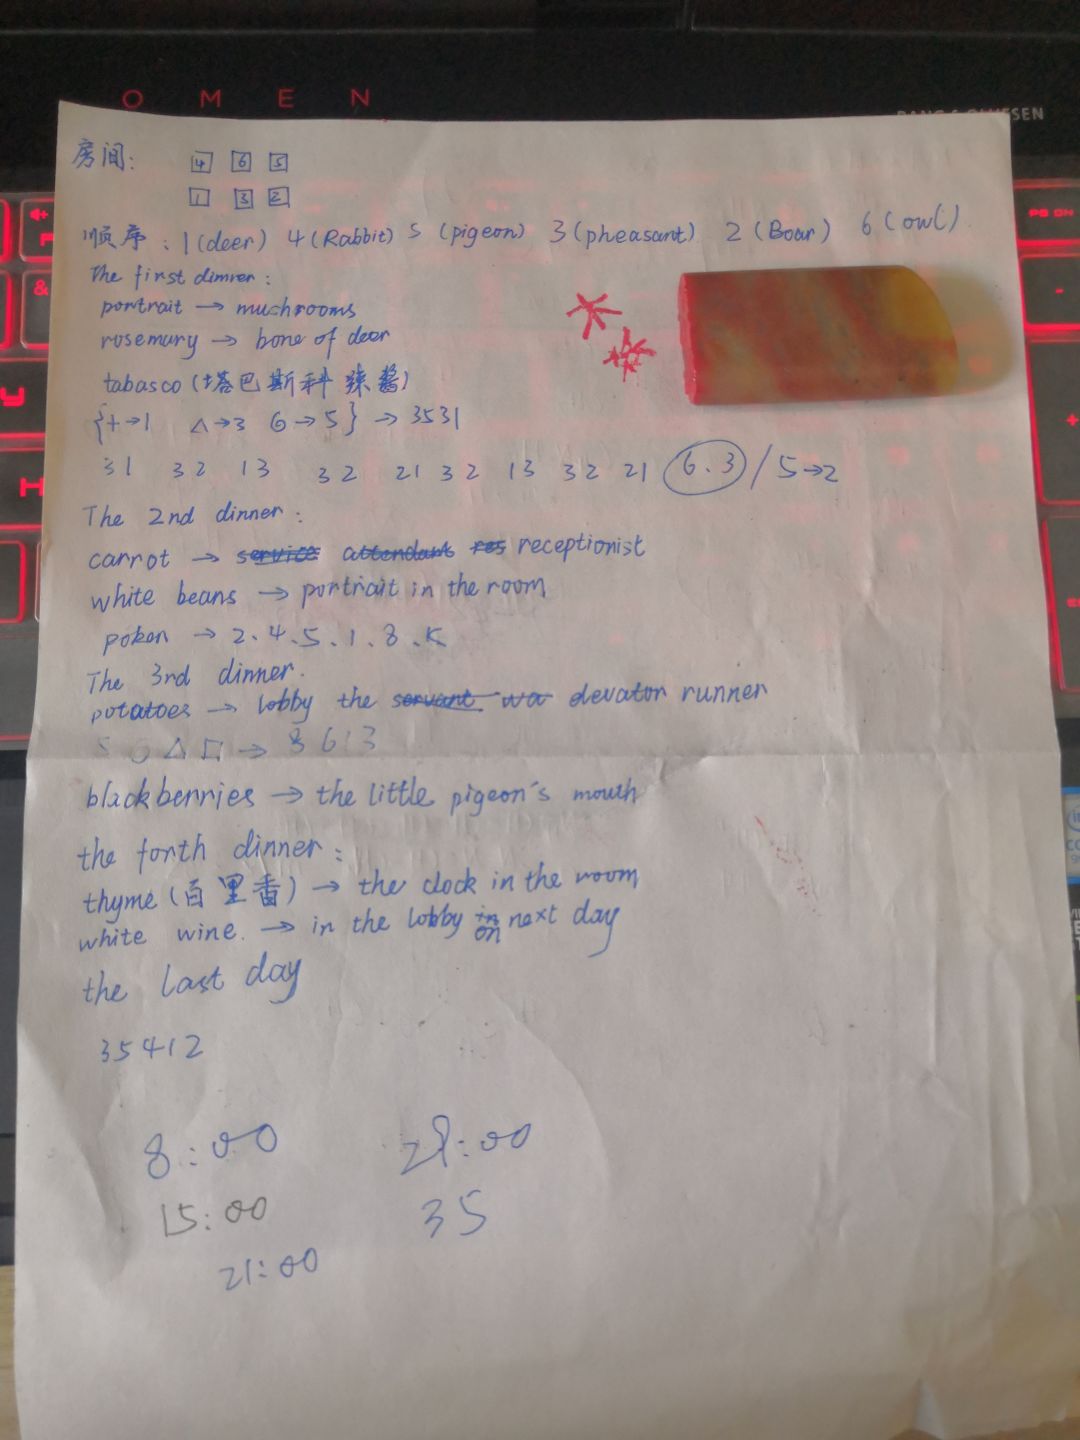 OMEN
房间:
4 6 5
1 3 2
顺序: 1(deer) 4(Rabbit) 5(pigeon) 3(pheasant) 2(Boar) 6(owl)
The first dinner:
portrait → muchrooms
rosemary → bone of deer
tabasco(塔巴斯科辣酱)
{+→1 △→3 6→5} → 3531
31 32 13 32 21 32 13 32 21 6.3 / 5→2
The 2nd dinner:
carrot → service attendant res receptionist
white beans → portrait in the room
poker → 2.4.5.1.8.K
The 3rd dinner.
potatoes → lobby the servant wa elevator runner
△ □ → 8613
blackberries → the little pigeon's mouth
the forth dinner:
thyme(百里香) → the clock in the room
white wine. → in the lobby in on next day
the last day
35412
8:00
15:00
21:00
35
21:00